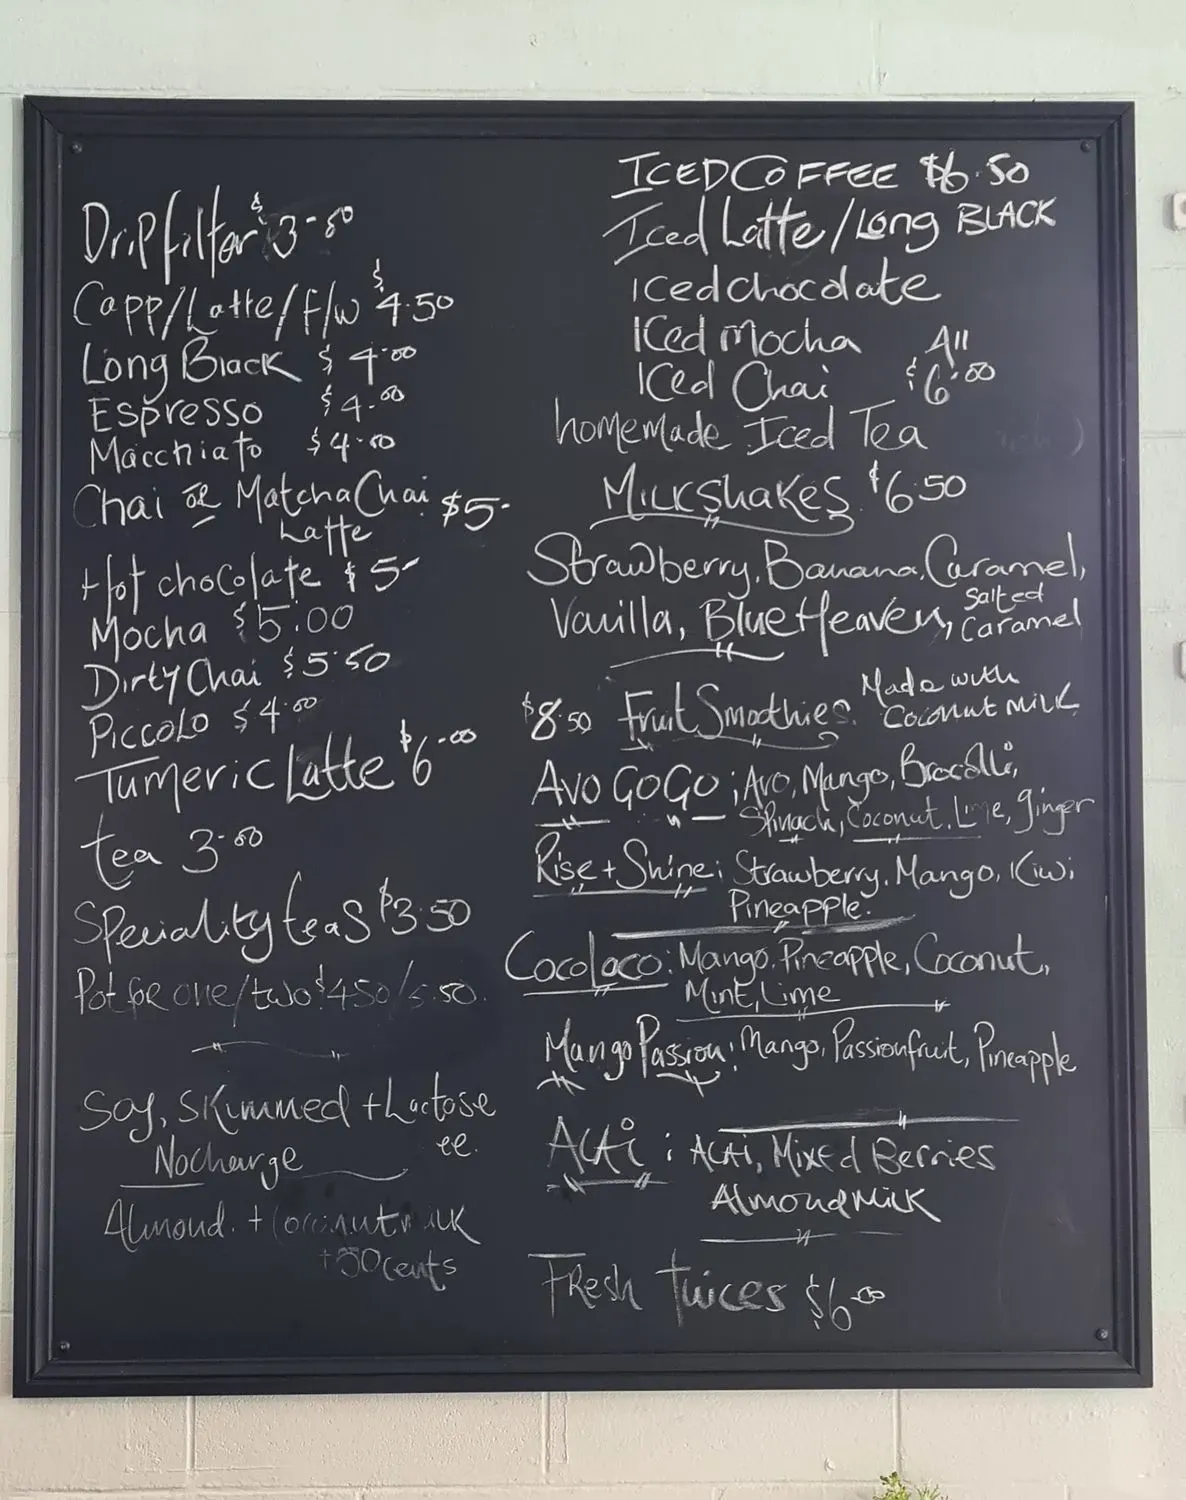 Drip filter $3-50
Capp/Latte/F/W $4.50
Long Black $4.00
Espresso $4.00
Macchiato $4.50
Chai or Matcha Chai $5-
Latte
Hot chocolate $5-
Mocha $5.00
Dirty Chai $5.50
Piccolo $4.00
Tumeric Latte $6-00
tea 3-50
Speciality teas $3.50
Pot for one/two $4.50/5.50
Soy, Skimmed + Lactose
ee.
No charge
Almond. + Coconut milk
+50cents
ICED COFFEE $6.50
Iced Latte/Long BLACK
Iced chocolate
Iced mocha All
Iced Chai $6.00
homemade Iced Tea
MILKSHAKES $6.50
Strawberry, Banana, Caramel,
Vanilla, Blue Heaven, Salted Caramel
$8.50 Fruit Smoothies. Made with Coconut milk
AVO GOGO; Avo, Mango, Brocolli,
Spinach, Coconut, Lime, ginger
Rise + Shine; Strawberry, Mango, Kiwi
Pineapple.
Coco Loco: Mango, Pineapple, Coconut,
Mint, Lime
Mango Passion; Mango, Passionfruit, Pineapple
ACAi : ACAi, Mixed Berries
Almond Milk
Fresh Juices $6-00